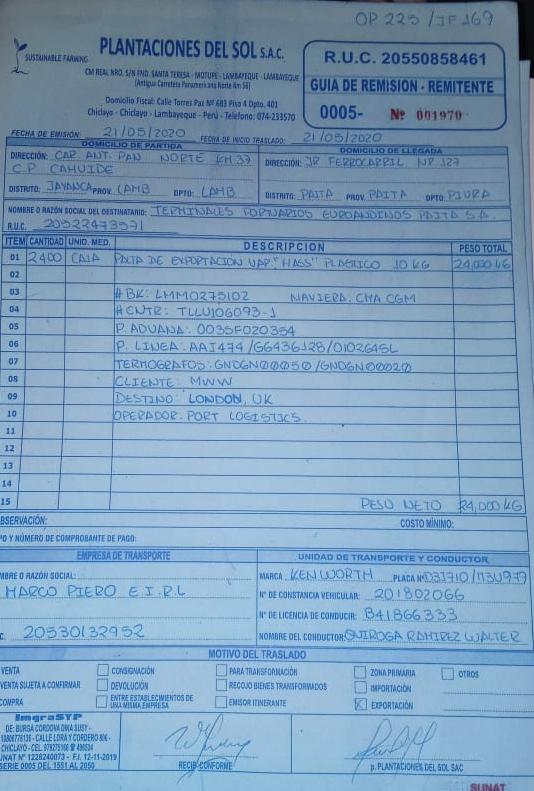 OP 225 / JF 169
SUSTAINABLE FARMING
PLANTACIONES DEL SOL S.A.C.
CM REAL NRO. S/N FND. SANTA TERESA - MOTUPE - LAMBAYEQUE - LAMBAYEQUE
(Antigua Carretera Panamericana Norte Km 56)
Domicilio Fiscal: Calle Torres Paz Nº 683 Piso 4 Dpto. 401
Chiclayo - Chiclayo - Lambayeque - Perú - Telefono: 074-233570
R.U.C. 20550858461
GUIA DE REMISION - REMITENTE
0005- Nº 001970
FECHA DE EMISIÓN: 21/05/2020 FECHA DE INICIO TRASLADO: 21/05/2020
DOMICILIO DE PARTIDA DOMICILIO DE LLEGADA
DIRECCIÓN: CAR. ANT. PAN NORTE KM 37 DIRECCIÓN: JR FERROCARRIL Nº 127
C.P CAHUIDE
DISTRITO: JAYANCA PROV. LAMB DPTO: LAMB DISTRITO: PAITA PROV. PAITA DPTO: PIURA
NOMBRE O RAZÓN SOCIAL DEL DESTINATARIO: TERMINALES PORTUARIOS EUROANDINOS PAITA S.A.
R.U.C. 20522473571
ITEM CANTIDAD UNID. MED. DESCRIPCION PESO TOTAL
01 2400 CAJA PALTA DE EXPORTACION VAR. "HASS" PLASTICO 10 KG 24,000 KG
02
03 # BK: LMM0275102 NAVIERA: CMA CGM
04 # CNTR: TLLU106093-1
05 P. ADUANA: 0035F020354
06 P. LINEA: AAI474 /G6436128/0102645L
07 TERMOGRAFOS: GNDGN00050 /GNDGN00020
08 CLIENTE: MWW
09 DESTINO: LONDON, UK
10 OPERADOR: PORT LOGISTICS.
11
12
13
14
15 PESO NETO 24,000 KG
OBSERVACIÓN: COSTO MÍNIMO:
PO Y NÚMERO DE COMPROBANTE DE PAGO:
EMPRESA DE TRANSPORTE UNIDAD DE TRANSPORTE Y CONDUCTOR
MBRE O RAZÓN SOCIAL: MARCA KENWORTH PLACA Nº D3J710 /M3U979
MARCO PIERO E.I.R.L Nº DE CONSTANCIA VEHICULAR: 201802066
Nº DE LICENCIA DE CONDUCIR: B41866333
C. 20530132952 NOMBRE DEL CONDUCTOR: QUIROGA RAMIREZ WALTER
MOTIVO DEL TRASLADO
VENTA CONSIGNACIÓN PARA TRANSFORMACIÓN ZONA PRIMARIA OTROS
VENTA SUJETA A CONFIRMAR DEVOLUCIÓN RECOJO BIENES TRANSFORMADOS IMPORTACIÓN
COMPRA ENTRE ESTABLECIMIENTOS DE UNA MISMA EMPRESA EMISOR ITINERANTE EXPORTACIÓN
ImgraSYP
DE: BURGA CORDOVA DINA SUSY -
CALLE LORA Y CORDERO 806 -
CHICLAYO - CEL. 979275166
SUNAT Nº 1228240073 - F.I. 12-11-2019
SERIE 0005 DEL 1551 AL 2050
RECIBI CONFORME p. PLANTACIONES DEL SOL SAC
SUNAT